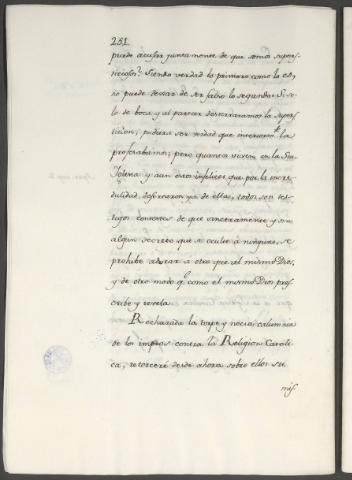 281
puede acusar juntamente de que somos supers-
ticiosos. Siendo verdad lo primero como lo es,
no puede dexar de ser falso lo segundo. Si so-
lo de boca y al parecer desterraramos la supers-
ticion, pudiera ser verdad que interiorm.te la
profesabamos; pero quantos viven en la Sta.
Iglesia y aun otros infelices que por la incre-
dulidad desertaron ya de ella, todos son tes-
tigos contextes de que enteramente y sin
algun secreto que se oculte á ninguno, se
prohibe adorar a otro que al mismo Dios,
y de otro modo q.e como el mismo Dios pres-
cribe y revela.
Rechazada la torpe y necia calumnia
de los impios contra la Religion Catoli-
ca, retorceré desde ahora sobre ellos su
mis-